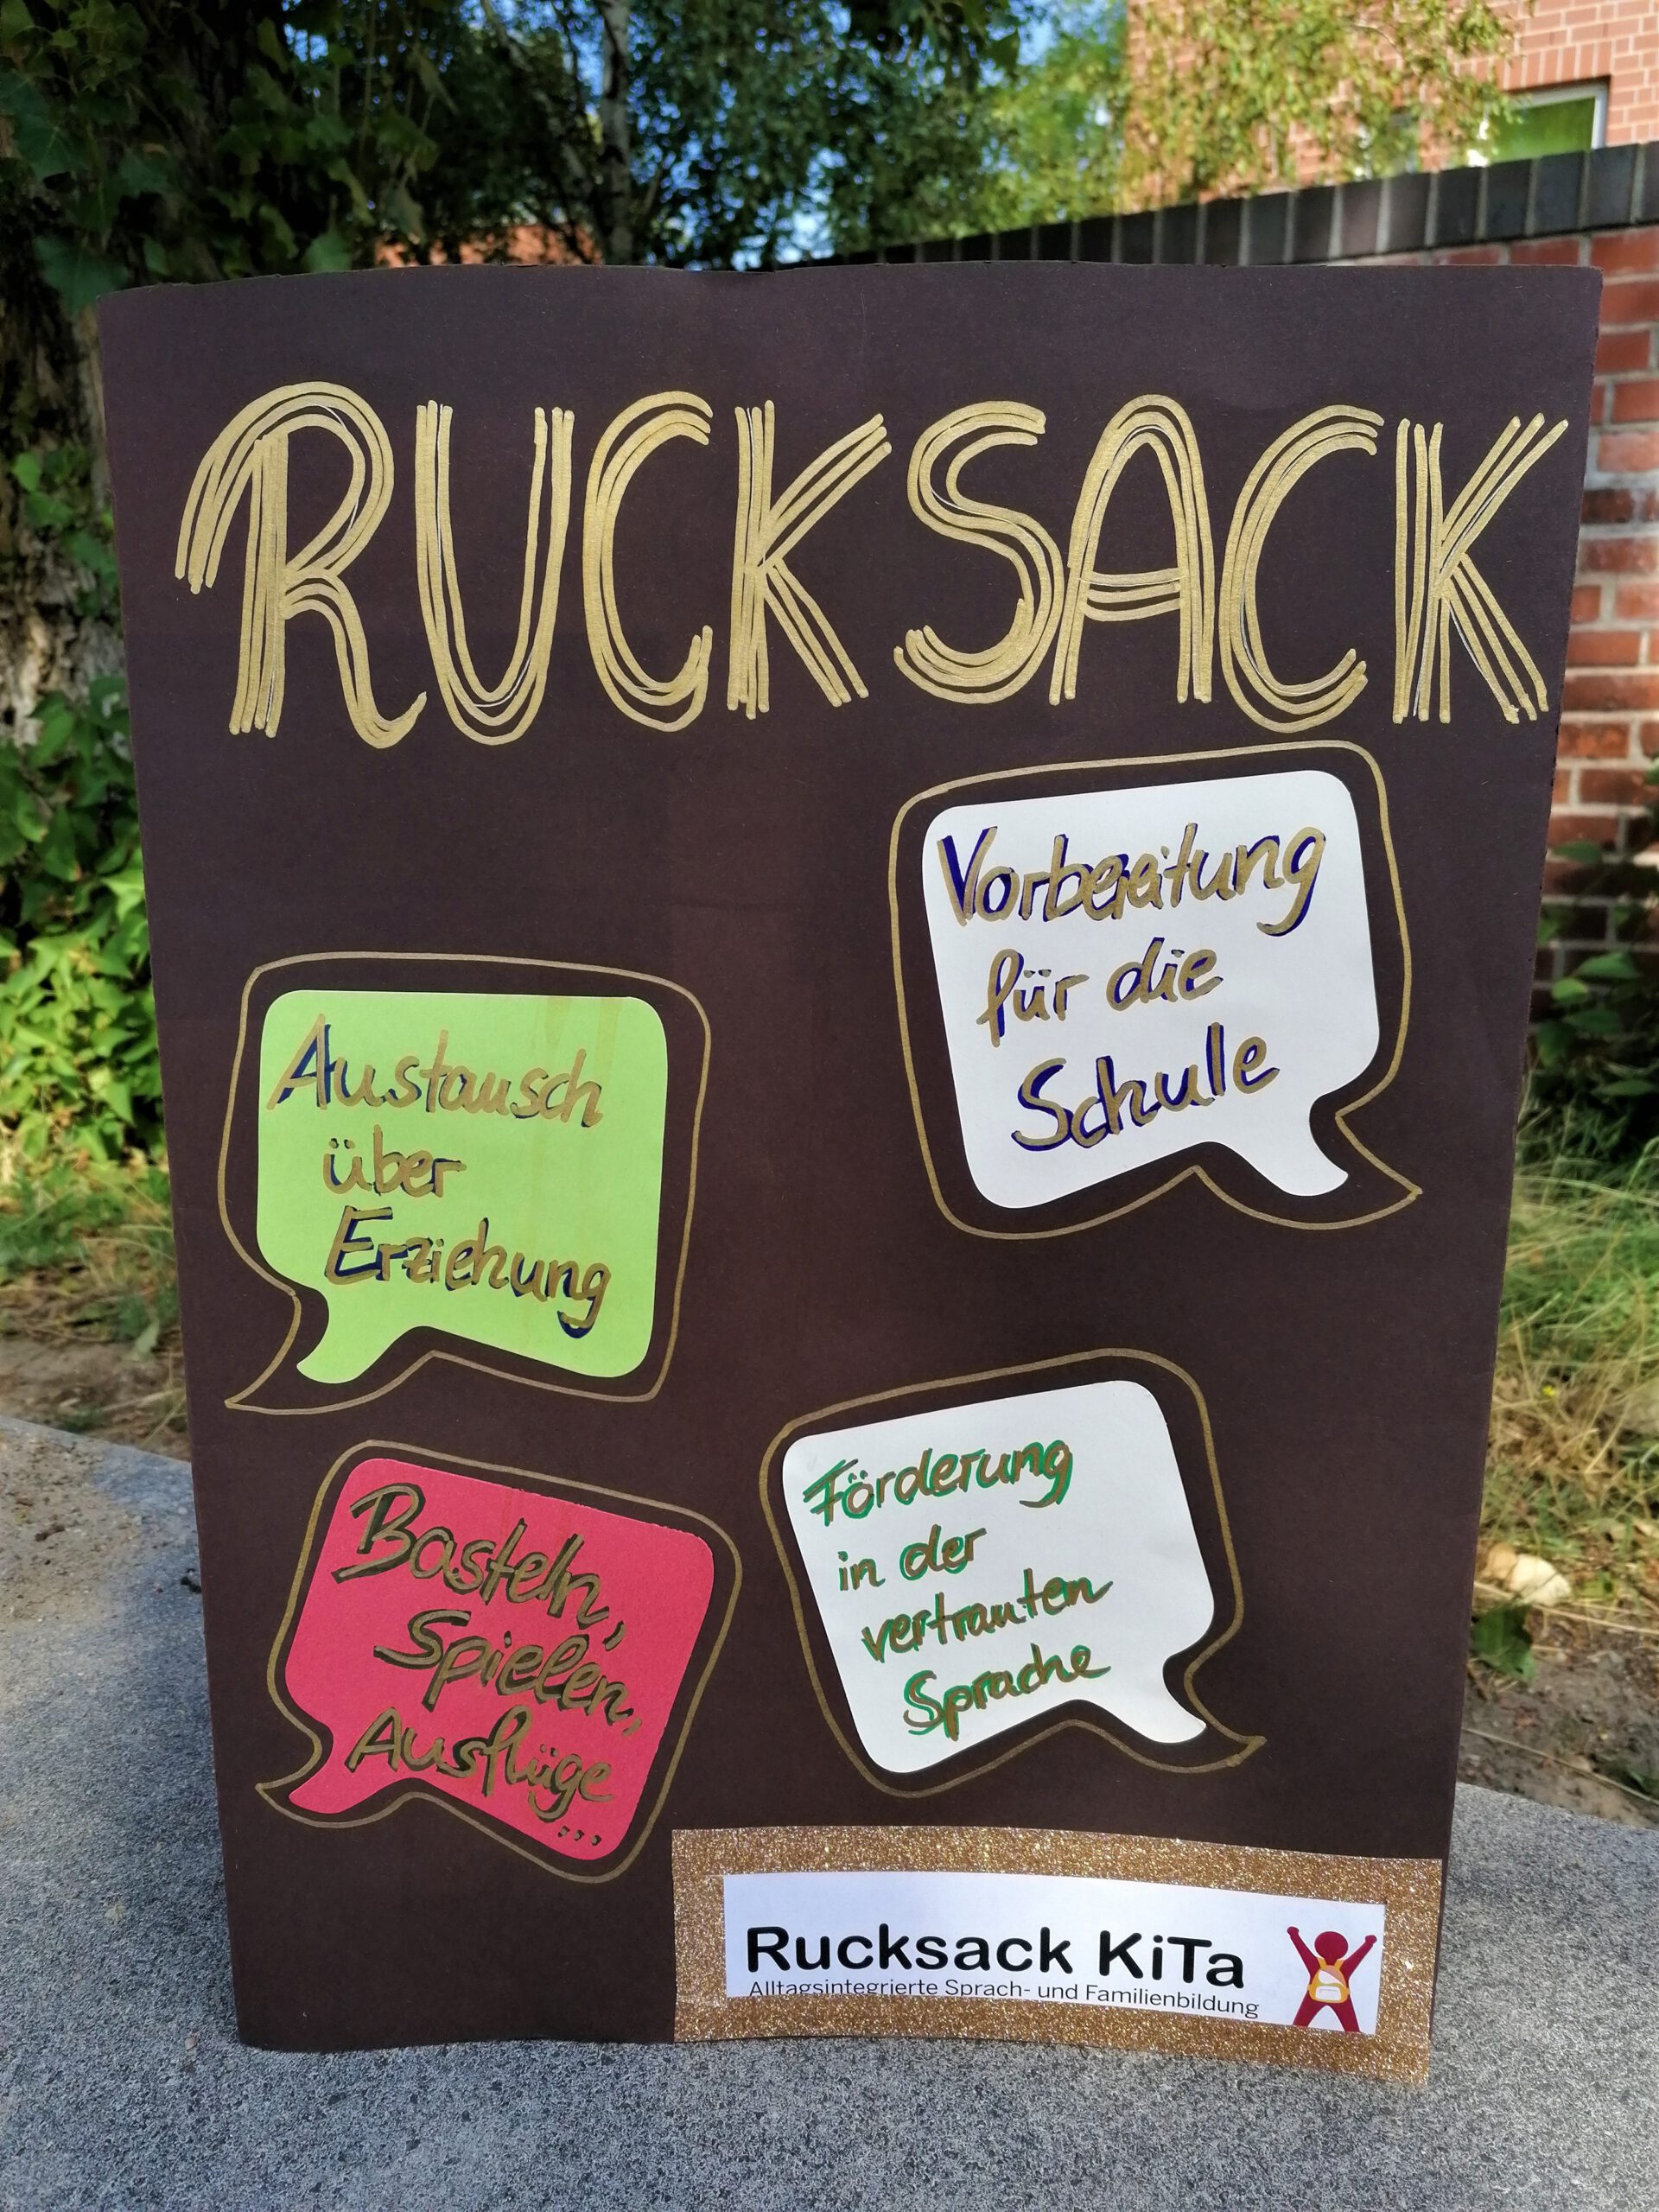 RUCKSACK
Vorbereitung
für die
Schule
Austausch
über
Erziehung
Förderung
in der
vertrauten
Sprache
Basteln,
Spielen,
Ausflüge
...
Rucksack KiTa
Alltagsintegrierte Sprach- und Familienbildung